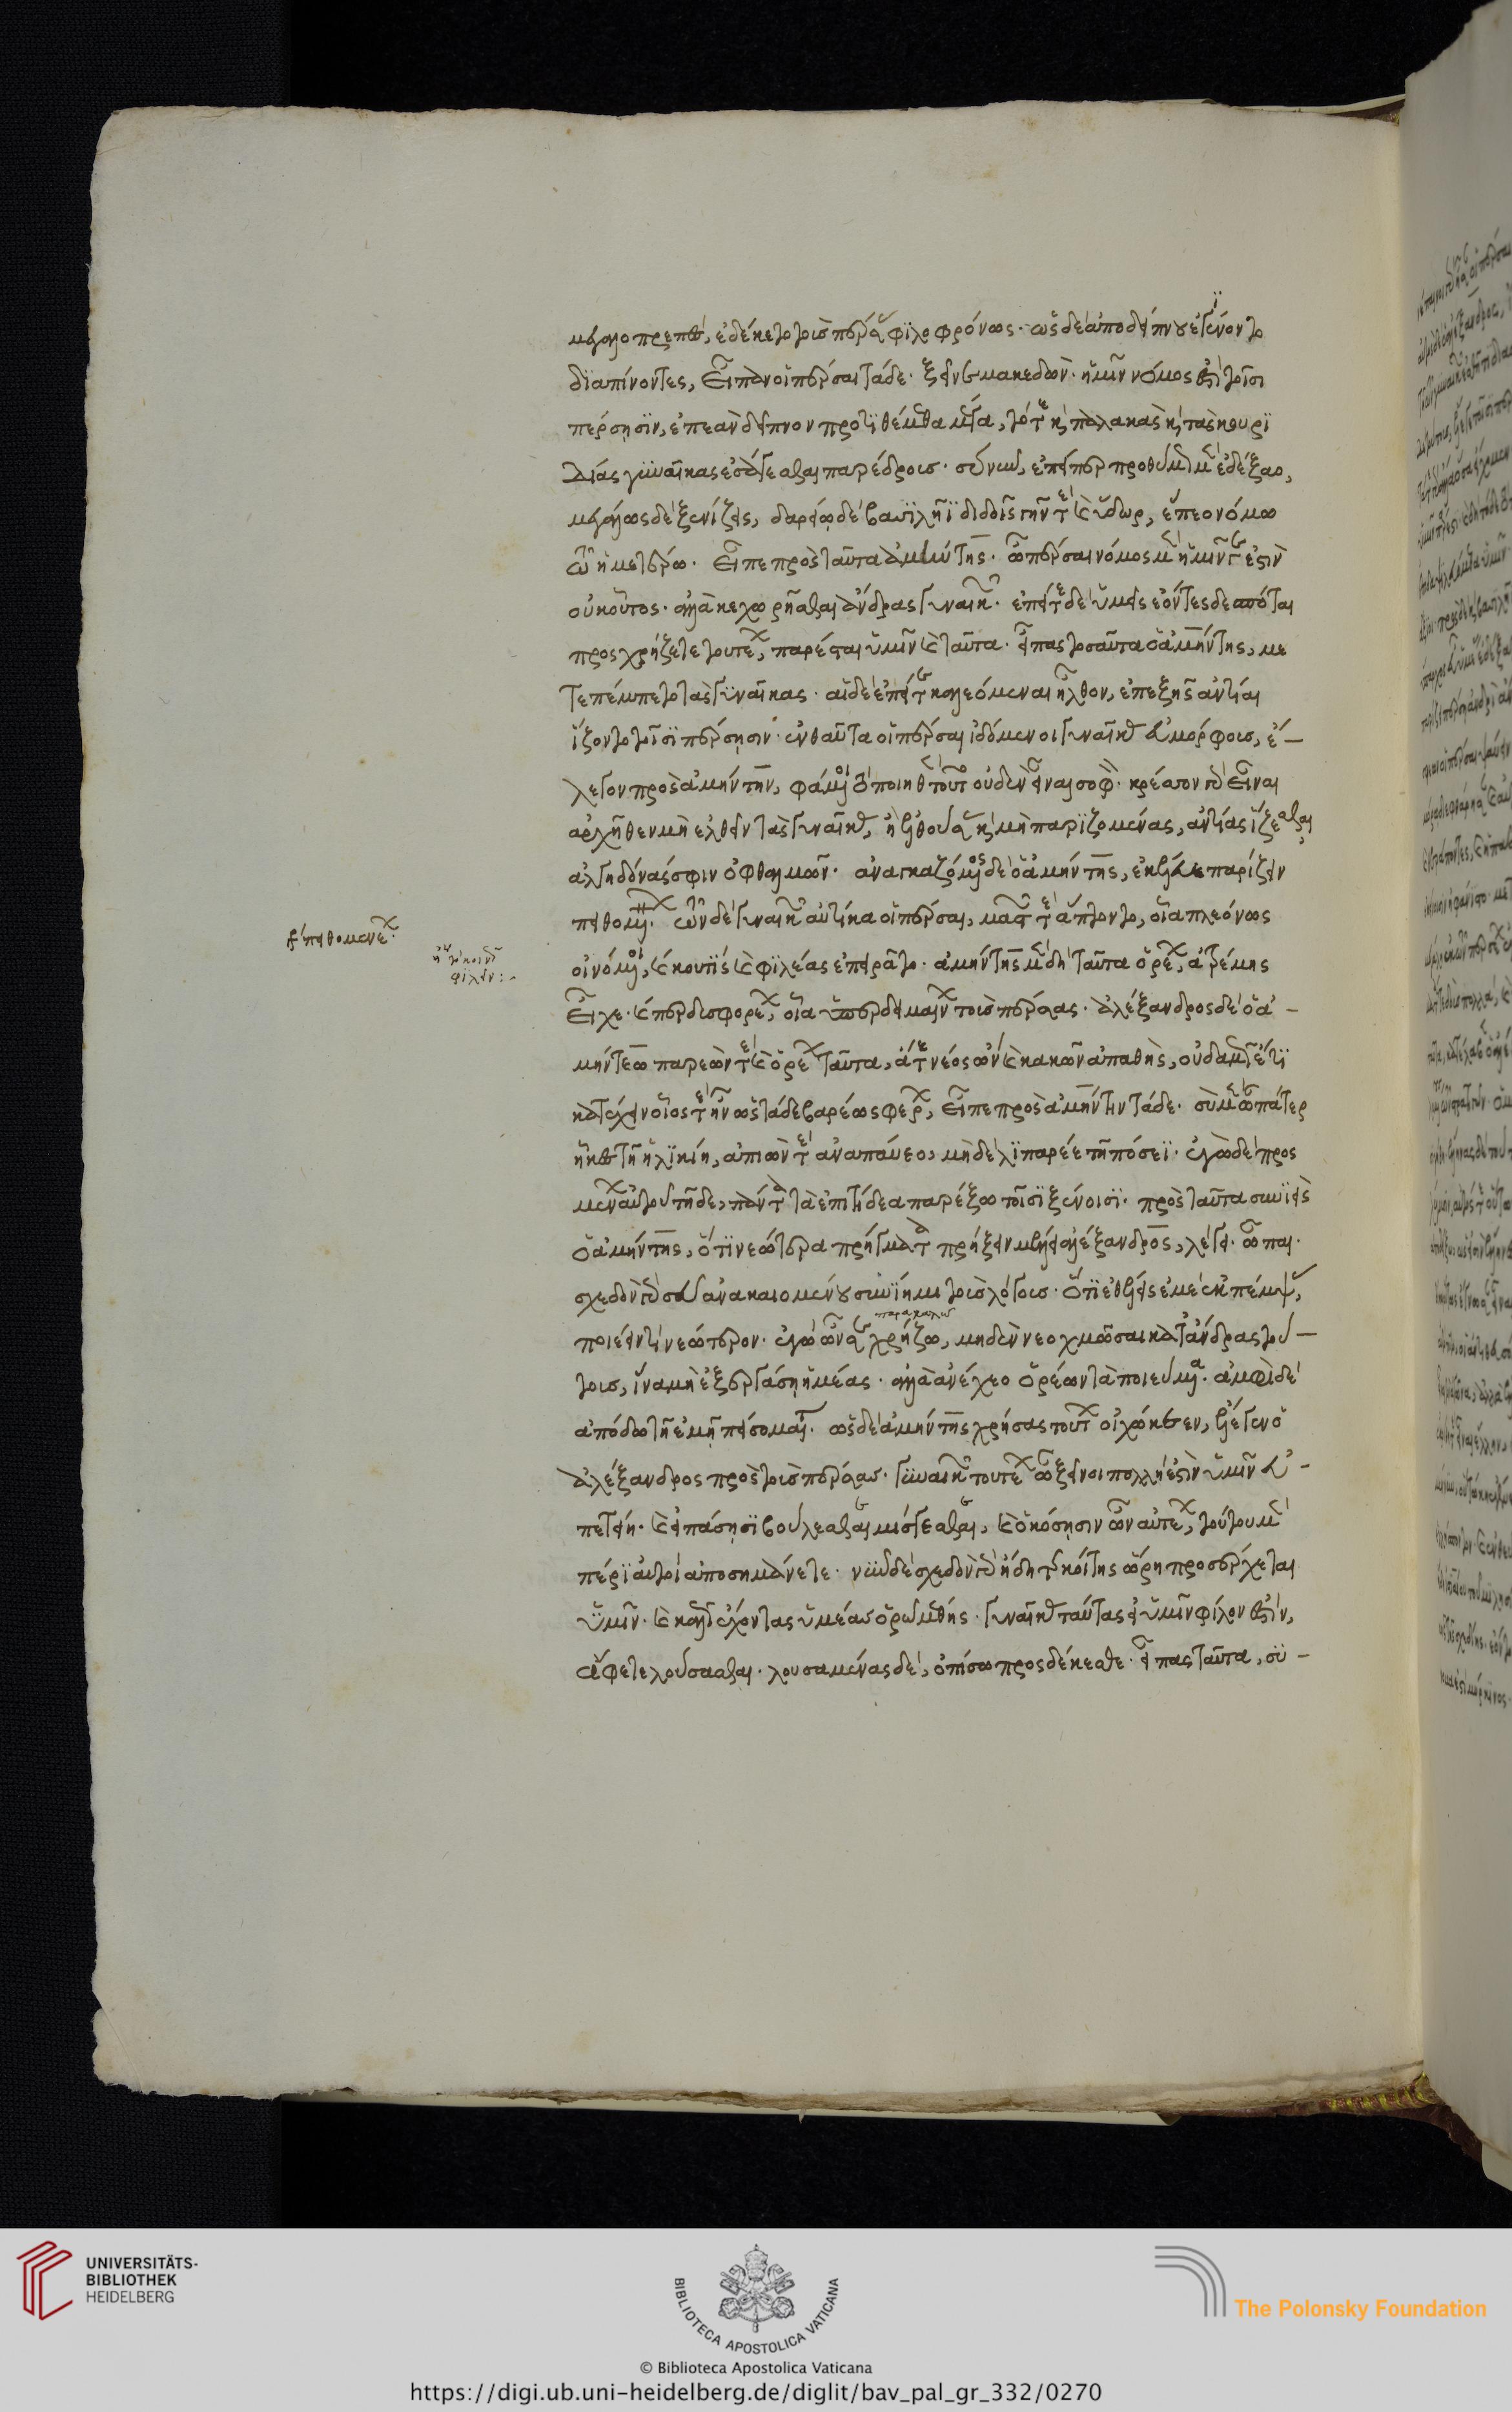 μεγαλοπρεπέα, ἐδέκετο τοὺς πέρσας φιλοφρόνως. ὡς δὲ ἀπὸ δείπνου ἐγένοντο
διαπίνοντες, εἶπαν οἱ πέρσαι τάδε. ξεῖνε μακεδών. ἡμῖν νόμος ἐστὶ τοῖσι
πέρσησιν, ἐπεὰν δεῖπνον προτιθέμεθα μέγα, τότε καὶ παλακὰς καὶ τὰς κουρι
δίας γυναῖκας ἐσάγεσθαι παρέδρους. σύ νυν, ἐπείπερ προθύμως μὲν ἐδέξαο,
μεγάλως δὲ ξενίζεις, δαρείῳ δὲ βασιλῆϊ διδοῖς γῆν τε καὶ ὕδωρ, ἕπεο νόμω
τῶ ἡμετέρω. εἶπε πρὸς ταῦτα ἀμύντης. ὦ πέρσαι νόμος μὲν ἡμῖν γε ἐστὶν
οὐκ οὗτος. ἀλλὰ κεχωρῆσθαι ἄνδρας γυναικῶν. ἐπεί τε δὲ ὑμεῖς ἐόντες δεσπόται
προσχρήζετε τουτέων, παρέσται ὑμῖν καὶ ταῦτα. εἴπας τοσαῦτα ὁ ἀμύντης, με
τεπέμπετο τὰς γυναῖκας. αἱ δὲ ἐπεί τε καλεόμεναι ἦλθον, ἐπεξῆς ἀντίαι
ἵζοντο τοῖσι πέρσησιν. ἐνθαῦτα οἱ πέρσαι ἰδόμενοι γυναῖκας εὐμόρφους, ἔ-
λεγον πρὸς ἀμύντην, φάμενοι τὸ ποιηθὲν τοῦτο οὐδὲν εἶναι σοφόν. κρέσσον γὰρ εἶναι
ἀρχῆθεν μὴ ἐλθεῖν τὰς γυναῖκας, ἢ ἐλθούσας καὶ μὴ παριζομένας, ἀντίας ἵζεσθαι
ἀλγηδόνας σφιν ὀφθαλμῶν. ἀναγκαζόμενος δὲ ὁ ἀμύντης, ἐκέλευε παρίζειν
πειθομένων δὲ γυναικῶν αὐτίκα οἱ πέρσαι, μαστῶν τε ἅπτοντο, οἷα πλεόνως
οἰνωμένοι, καί κού τις καὶ φιλέειν ἐπειρᾶτο. ἀμύντης μὲν δὴ ταῦτα ὁρέων, ἀτρέμας
εἶχε. καίπερ δυσφορέων, οἷα ὑπερδειμαίνων τοὺς πέρσας. ἀλέξανδρος δὲ ὁ ἀ-
μύντεω παρεών τε καὶ ὁρέων ταῦτα, ἅτε νέος ὢν καὶ κακῶν ἀπαθής, οὐδαμῶς ἔτι
κατέχειν οἷός τε ἦν ὥστε δὲ βαρέως φέρων, εἶπε πρὸς ἀμύντην τάδε. σὺ μὲν ὦ πάτερ
εἶκε τῇ ἡλικίῃ, ἀπιών τε ἀναπαύεο, μηδὲ λιπάρεε τῇ πόσεϊ. ἐγὼ δὲ προσ
μένων αὐτοῦ τῇδε, πάντα τὰ ἐπιτήδεα παρέξω τοῖσι ξείνοισι. πρὸς ταῦτα συνιεὶς
ὁ ἀμύντης, ὅτι νεώτερα πρήγματα πρήξειν μέλλει ἀλέξανδρος, λέγει. ὦ παῖ.
σχεδὸν γάρ σευ ἀνακαιομένου συνίημι τοὺς λόγους. ὅτι ἐθέλεις ἐμὲ ἐκπέμψας,
ποιέειν τι νεώτερον. ἐγὼ ὦν σευ χρηΐζω, μηδὲν νεοχμῶσαι κατ' ἄνδρας τού-
παρακαλῶ
τους, ἵνα μὴ ἐξεργάσῃ ἡμέας. ἀλλὰ ἀνέχεο ὁρέων τὰ ποιεύμενα. ἀμφὶ δὲ
ἀπόδῳ τῇ ἐμῇ πείσομαί τοι. ὡς δὲ ὁ ἀμύντης χρήσας τούτων οἰχώκεεν, λέγει ὁ
ἀλέξανδρος πρὸς τοὺς πέρσας. γυναικῶν τουτέων ὦ ξεῖνοι πολλή ἐστιν ὑμῖν εὐ-
πετείη. καὶ εἰ πάσῃσι βούλεσθαι μίσγεσθαι, καὶ ὁκόσῃσιν ὦν αὐτέων, τούτου μὲν
πέρι αὐτοὶ ἀποσημανέετε. νῦν δὲ σχεδὸν γὰρ ἤδη τῆς κοίτης ὥρη προσέρχεται
ὑμῖν. καὶ καλῶς ἔχοντας ὑμέας ὁρῶ μέθης. γυναῖκας ταύτας εἰ ὑμῖν φίλον ἐστίν,
ἄφετε λούσασθαι. λουσαμένας δέ, ὀπίσω προσδέκεσθε. εἴπας ταῦτα, σύ-
πειθομένων
φιλεῖν:
UNIVERSITÄTS-
BIBLIOTHEK
HEIDELBERG
BIBLIOTECA APOSTOLICA VATICANA
The Polonsky Foundation
© Biblioteca Apostolica Vaticana
https://digi.ub.uni-heidelberg.de/diglit/bav_pal_gr_332/0270